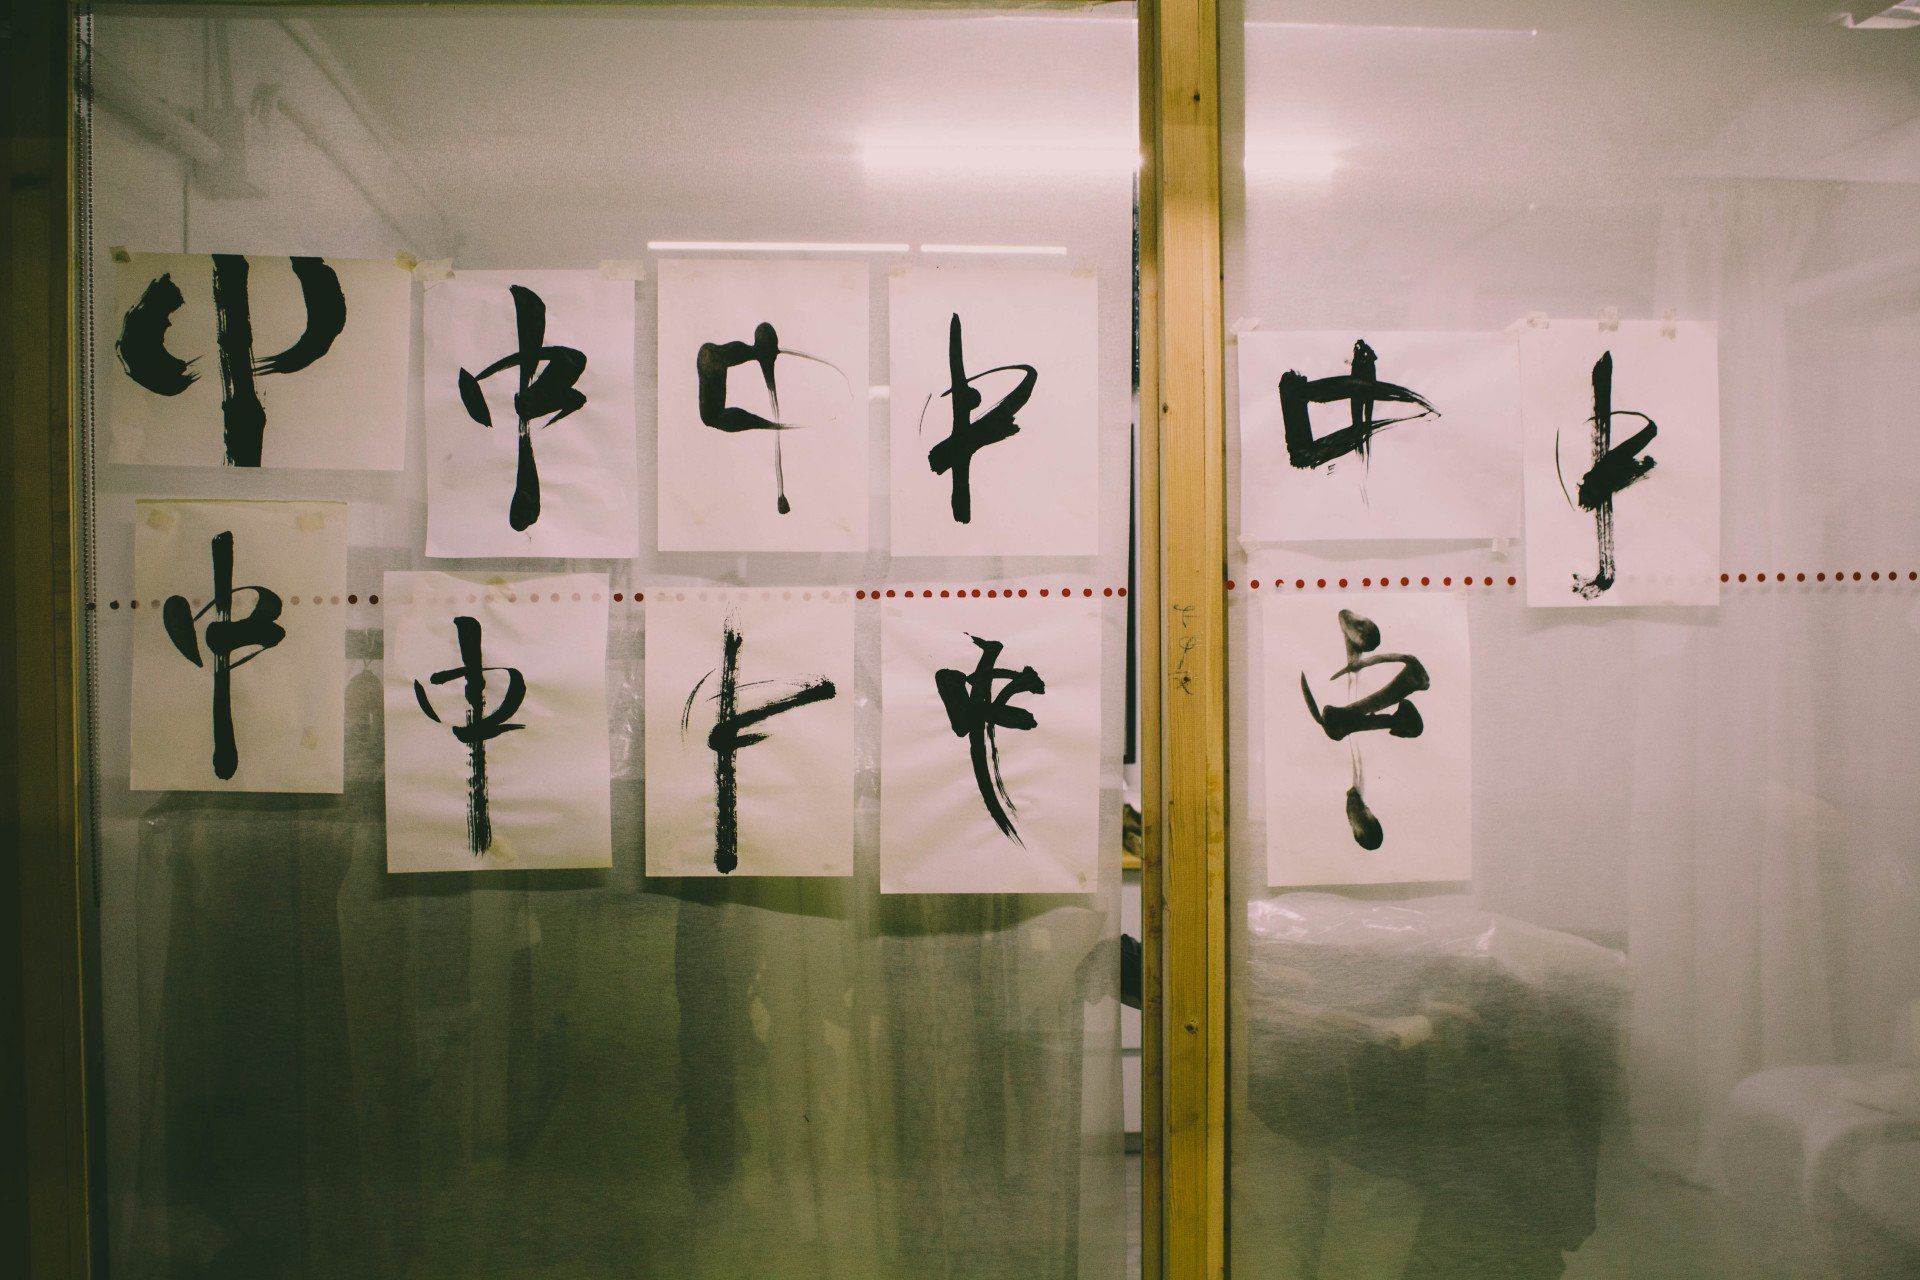 中
中
中
中
中
中
中
中
中
中
中